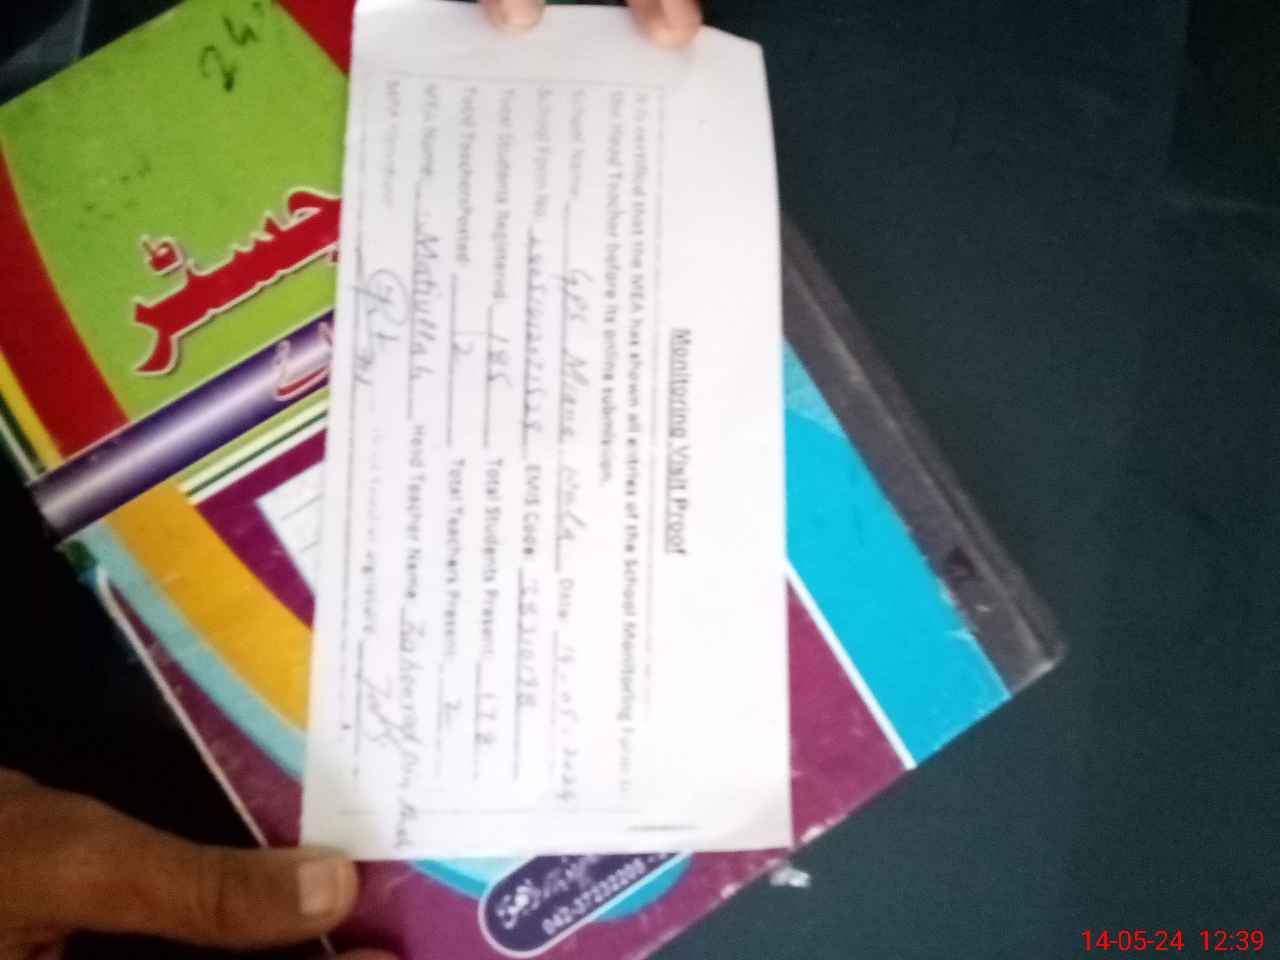 24
جسٹر
Monitoring Visit Proof
It is certified that the MEA has shown all entries of the School Monitoring Form to
the Head Teacher before its online submission.
School Name GPS Miana Date 14-05-2024
School Form No. EMIS Code
Total Students Registered 185 Total Students Present 178
Total Teachers Posted 2 Total Teachers Present 2
MEA Name Matiullah Head Teacher Name
MEA Signature Head Teacher Signature
042-37232205
14-05-24 12:39